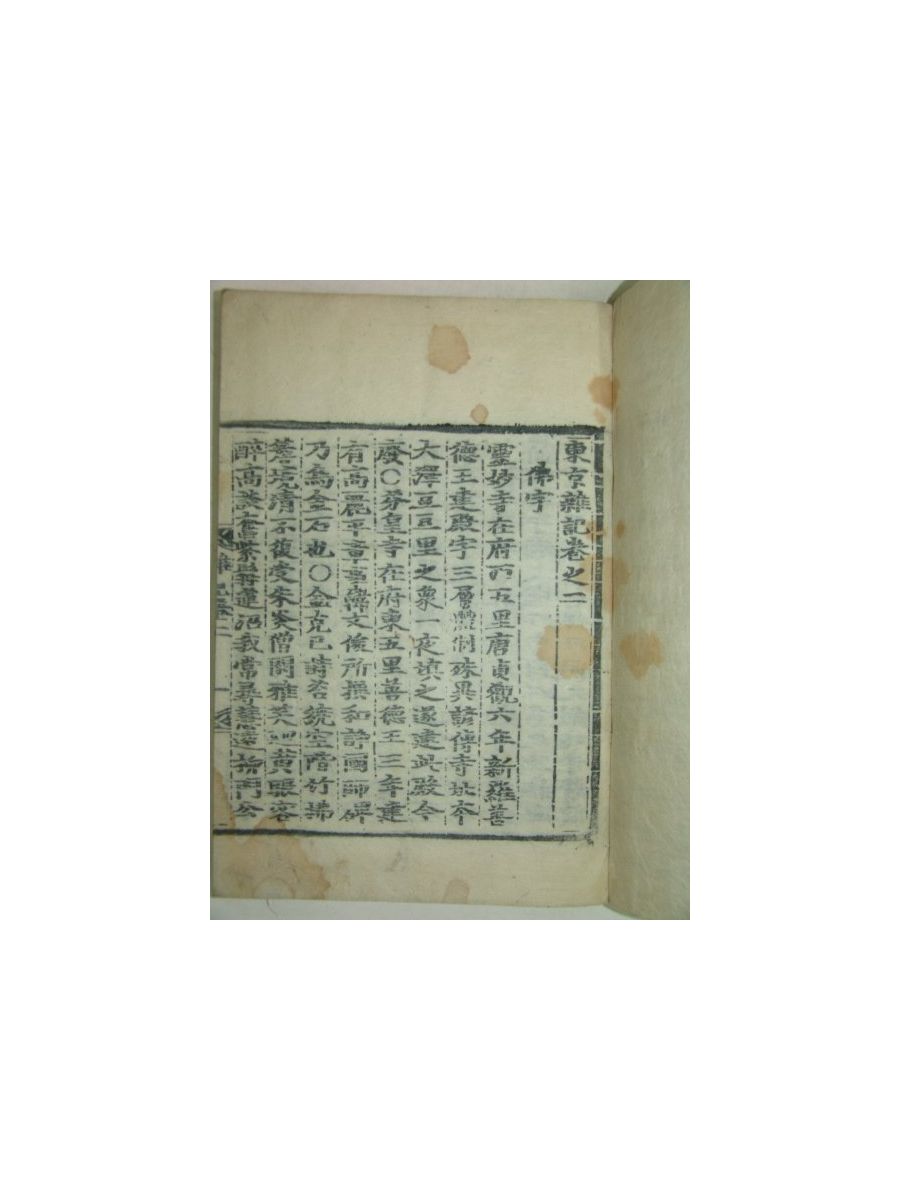 東京雜記卷之二
佛宇
靈妙寺在府西五里唐貞觀六年新羅善
德王建殿宇三層體制殊異諺傳寺址本
大澤豆豆里之衆一夜塡之遂建此殿今
廢〇芬皇寺在府東五里善德王三年建
有高麗平章事韓文俊所撰和諍國師碑
乃烏金石也〇金克己詩苔統空階竹拂
簷境淸不復受朱炎僧閑雅芙
黃眼客
醉高談
我常尋慧遠
公